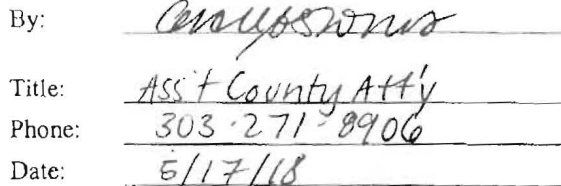 By:
Title: Ass't County Att'y
Phone: 303-271-8906
Date: 5/17/18